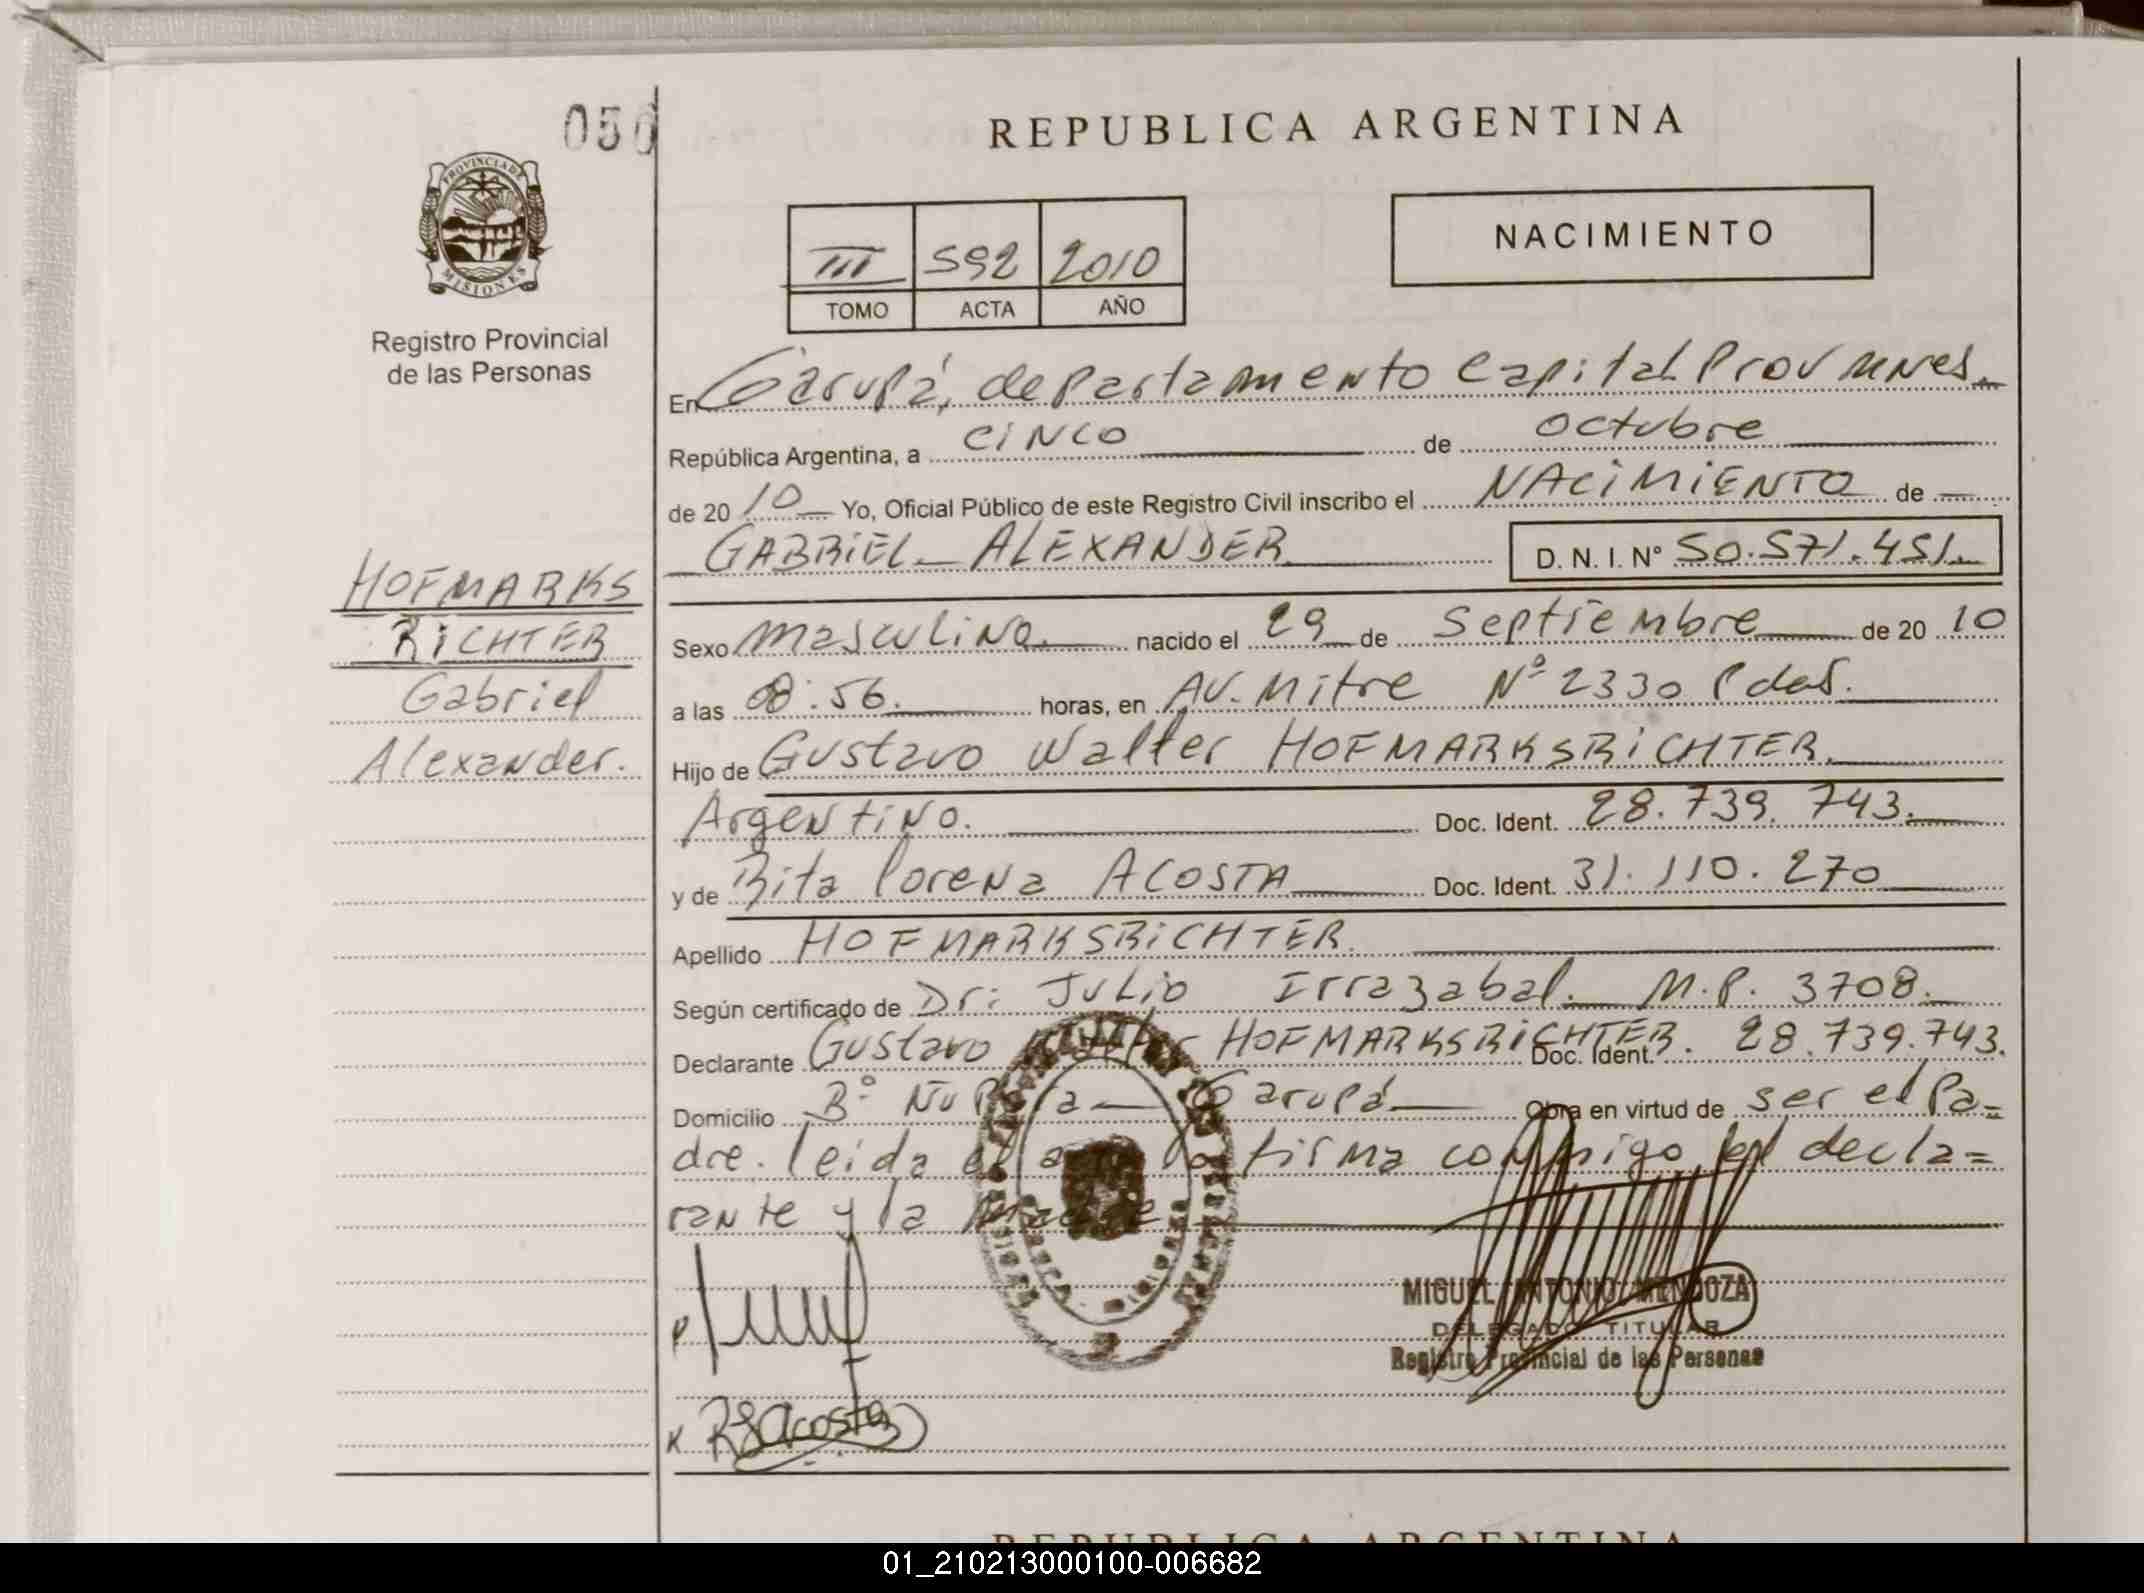 056
REPUBLICA ARGENTINA
PROVINCIA DE
MISIONES
Registro Provincial
de las Personas
III 592 2010
TOMO ACTA AÑO
NACIMIENTO
En Garupá, departamento Capital Prov mnes.
República Argentina, a cinco de octubre
de 2010 Yo, Oficial Público de este Registro Civil inscribo el NACIMIENTO de
GABRIEL ALEXANDER D. N. I. N° 50.571.451.
HOFMARKS
RICHTER
Gabriel
Alexander.
Sexo masculino. nacido el 29 de septiembre de 2010
a las 08:56. horas, en AV. Mitre Nº 2330 Pdas.
Hijo de Gustavo Walter HOFMARKSRICHTER.
Argentino. Doc. Ident. 28.739.743.
y de Rita Lorena ACOSTA Doc. Ident. 31.110.270
Apellido HOFMARKSRICHTER.
Según certificado de Dr: Julio Irrazabal. M.P. 3708.
Declarante Gustavo Walter HOFMARKSRICHTER. Doc. Ident. 28.739.743.
Domicilio Bº Ñu Porá Garupá Obra en virtud de ser el Pa=
dre. leida el acta la firma conmigo el decla=
rante y la madre
MIGUEL ANTONIO MENDOZA
DELEGADO TITULAR
Registro Provincial de las Personas
R L Acosta
REPUBLICA ARGENTINA
01_210213000100-006682